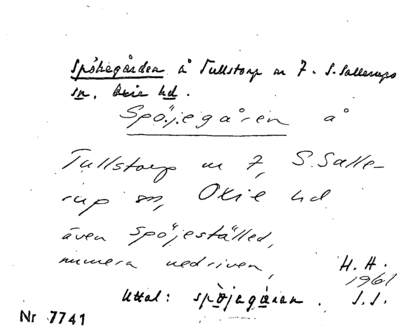 Spökegården å Tullstorp nr 7. S. Sallerups
sn, Oxie hd.
Spöjegåren å
Tullstorp nr 7, S. Salle-
rup sn, Oxie hd
även Spöjeställed,
numera nedriven, H. H.
1961
Uttal: spöjagåran. J. J.
Nr 7741